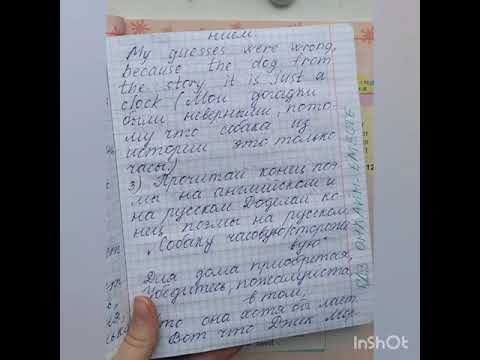 нием.
My guesses were wrong,
because the dog from
the story it is just a
clock (Мои догадки
были неверными, пото-
му что собака из
истории это только
часы.)
3) Прочитай конец поэ-
мы на английском и
на русском Доделай ко-
нец поэмы на русском
"Собаку часовую/сторожевую"
Для дома приобретая,
Убедитесь, пожалуйста,
в том,
что она хотя бы лает.
Вот что Джек
InShOt